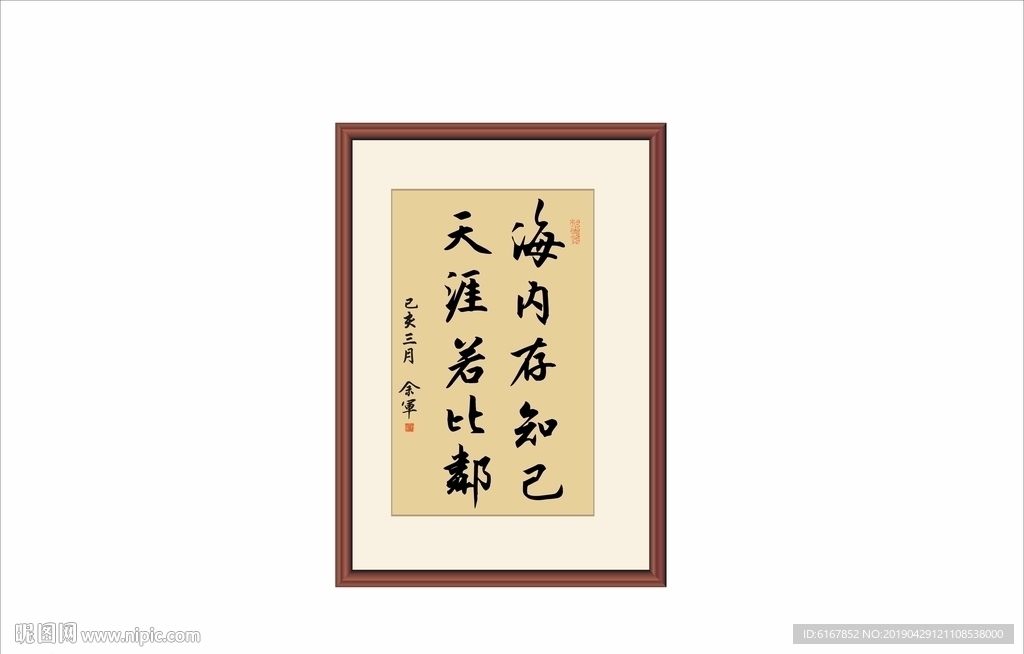 海内存知己
天涯若比鄰
己亥三月 余軍
昵图网 www.nipic.com
ID:6167852 NO:20190429121108538000